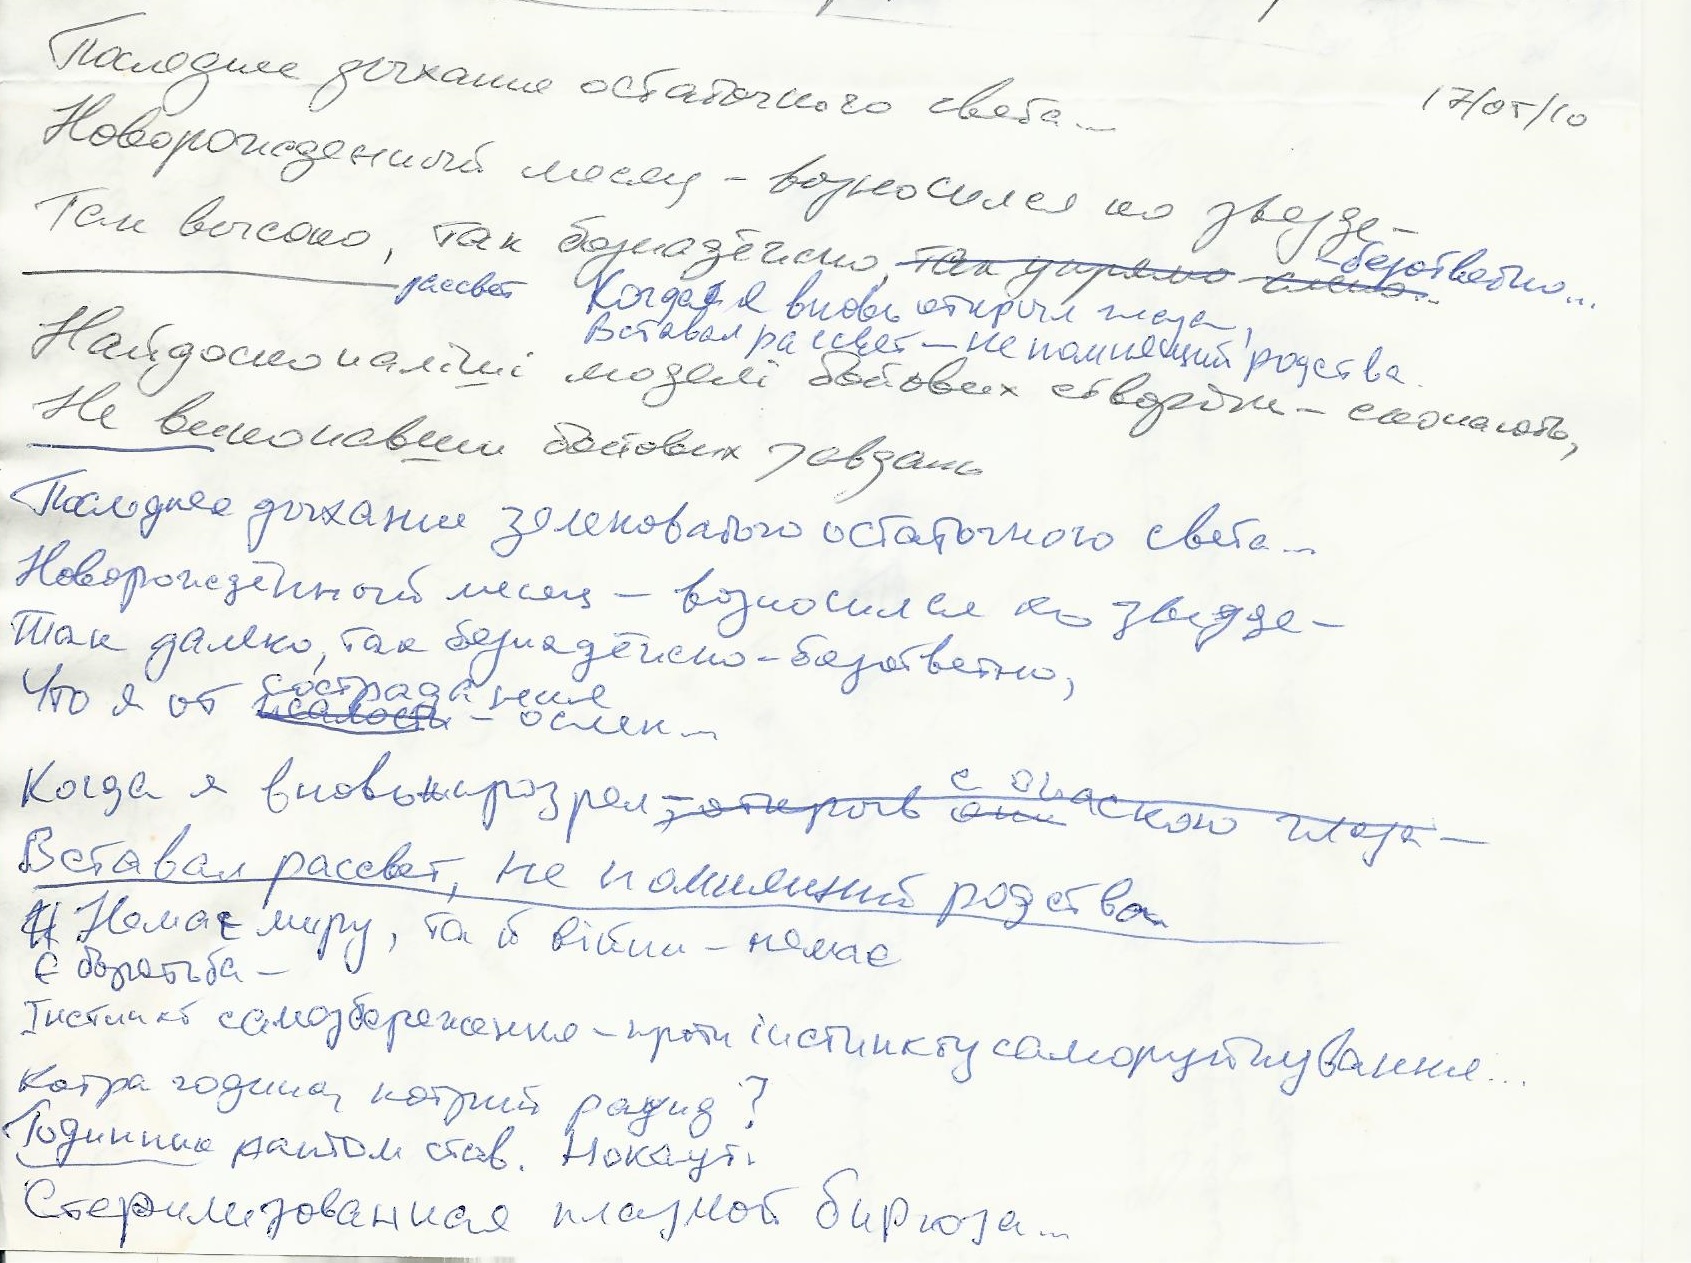 Последнее дыхание остаточного света...
17/05/10
Новорожденный месяц – возносился ко звезде –
Так высоко, так безнадёжно, так упрямо – безответно...
рассвет Когда я вновь открыл глаза,
Вставал рассвет – не помнящий родства.
Найдосконаліші моделі бойових створінь – сконають,
Не виконавши бойових завдань
Последнее дыхание зеленоватого остаточного света...
Новорождённый месяц – возносился ко звезде –
Так далеко, так безнадёжно-безответно,
Что я от сострадания
жалости – ослеп...
Когда я вновь прозрел, открыв с опаскою глаза –
Вставал рассвет, не помнящий родства
Немає миру, та й війни – немає
Є боротьба –
Інстинкт самозбереження – проти інстинкту саморуйнування...
Котра година, котрий раунд?
Годинник став. Нокаут.
Стерилизованная плазмой бирюза...